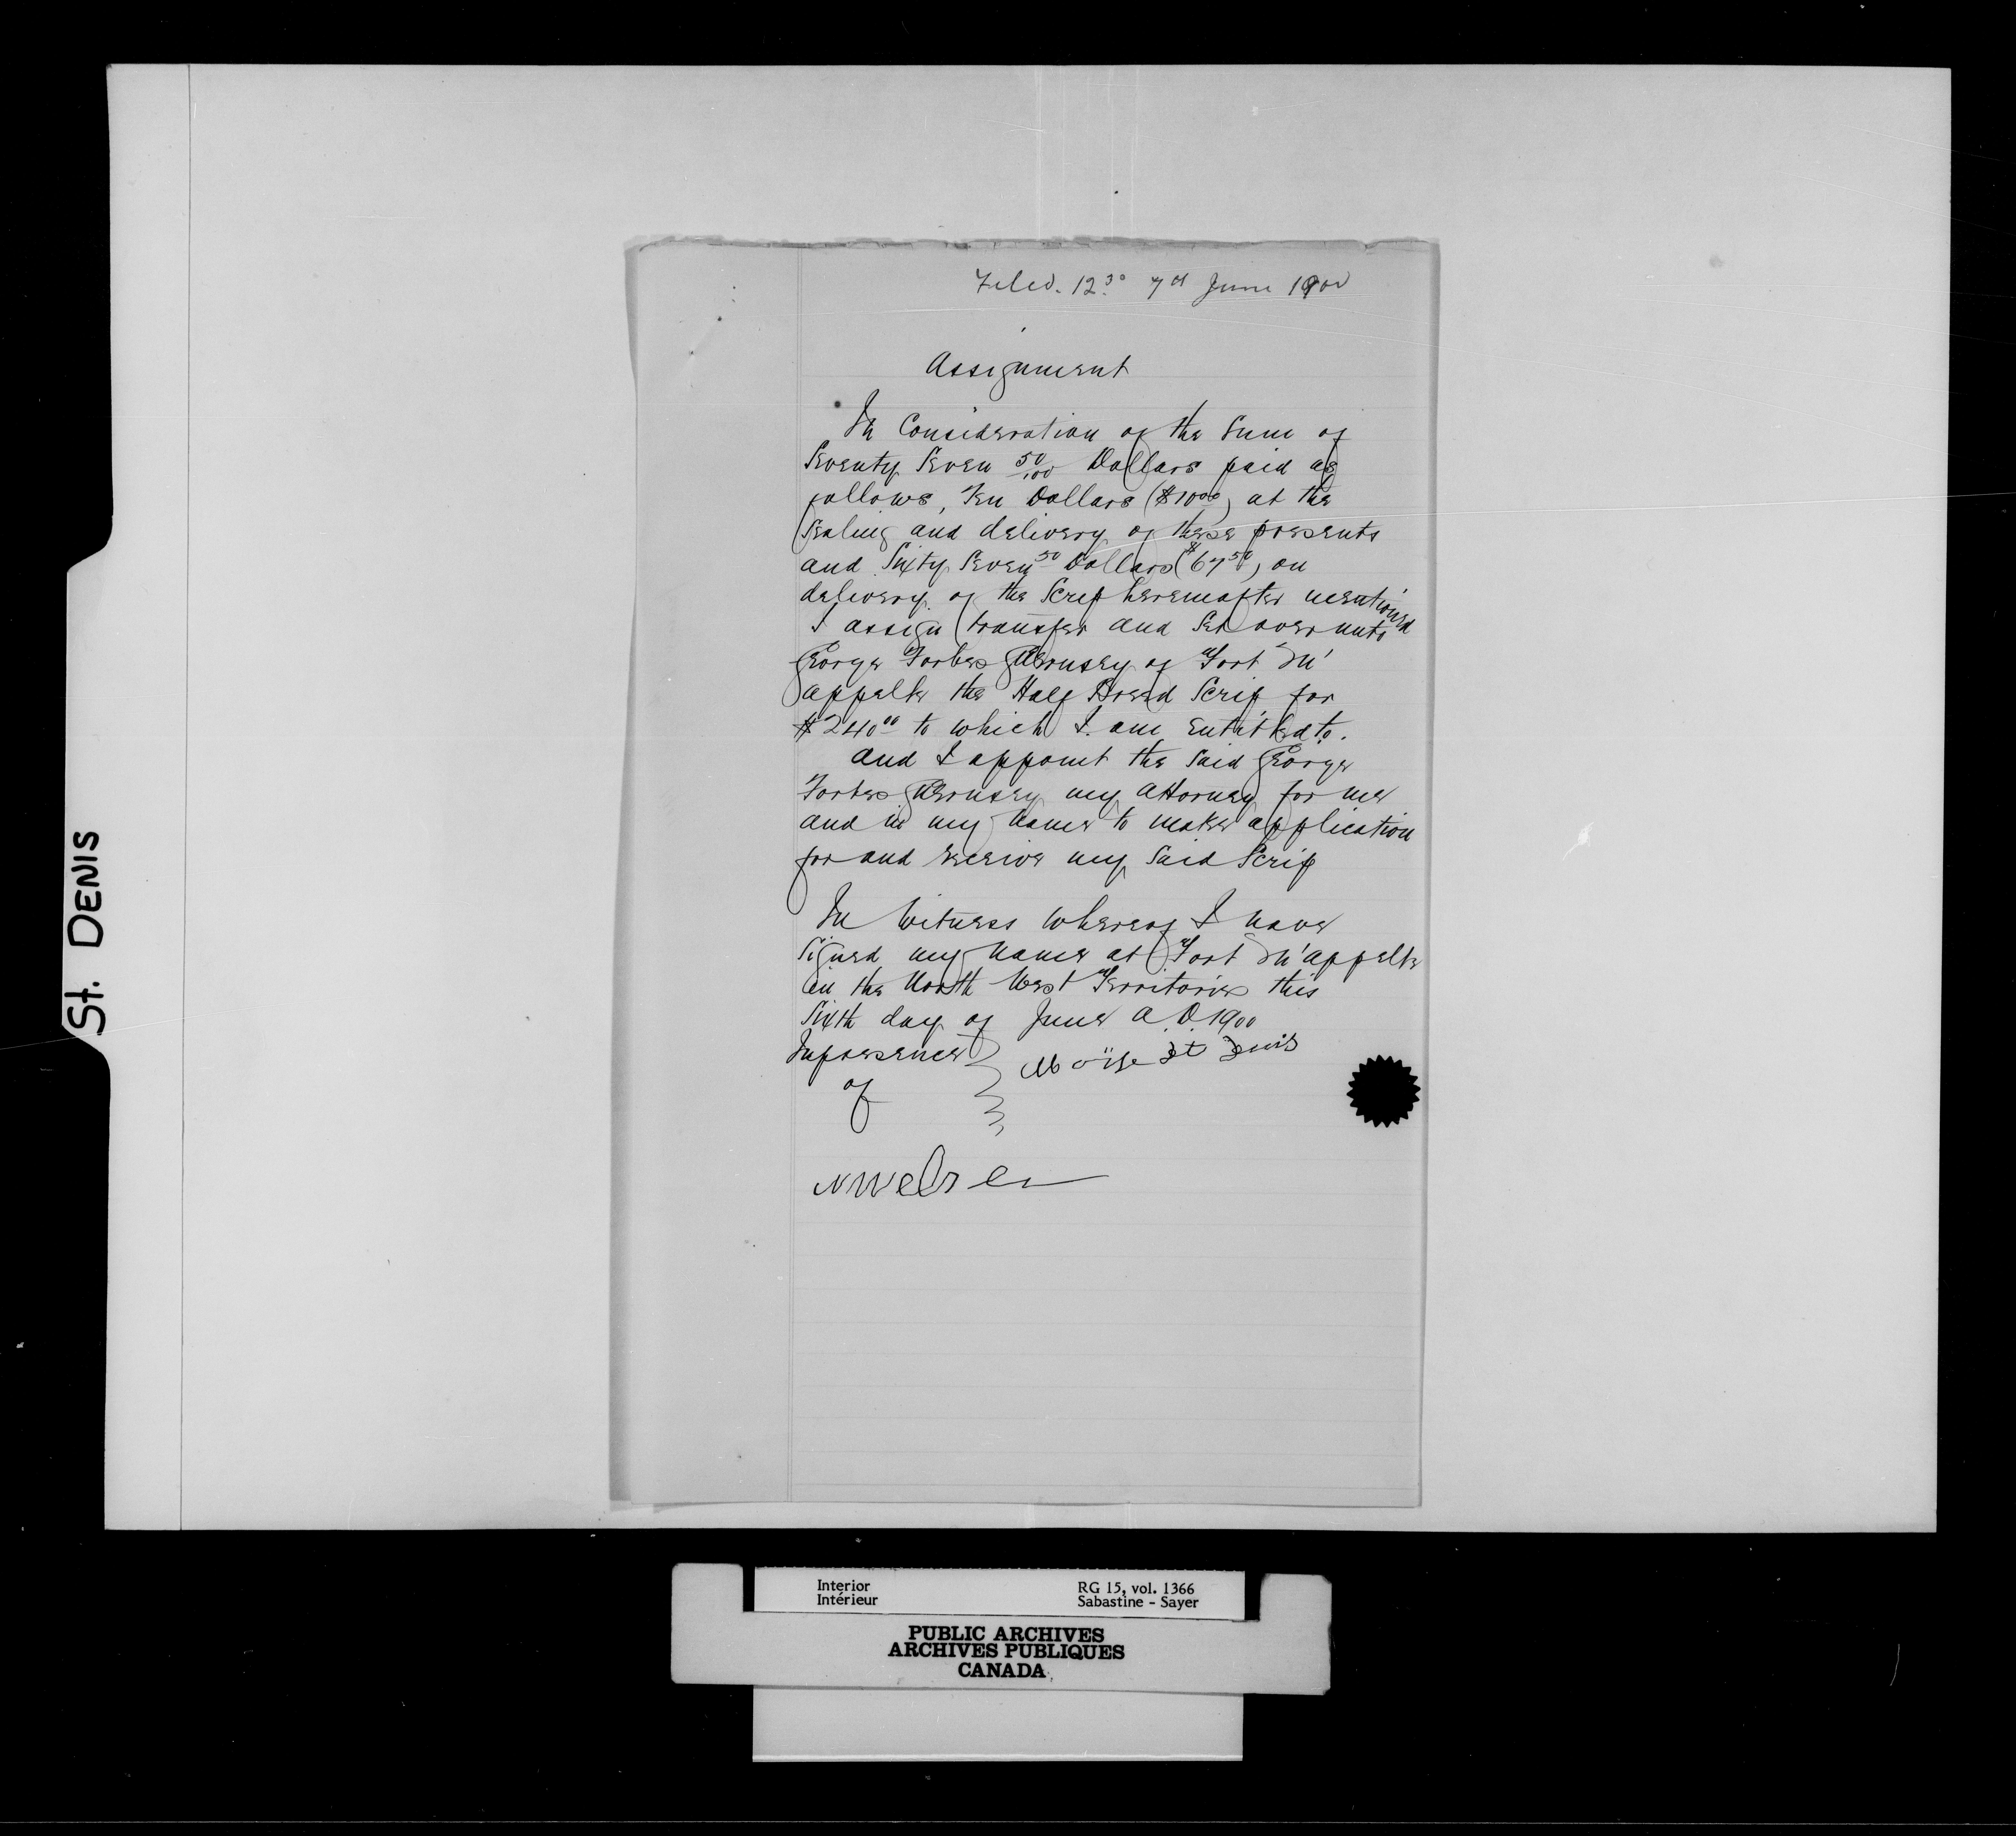 Filed. 12.30 7th June 1900
Assignment
In Consideration of the Sum of
Seventy Seven 50/100 Dollars paid as
follows, Ten Dollars ($10 00) at the
Sealing and delivery of these presents
and Sixty Seven 50 Dollars ($67 50) on
delivery of the Scrip hereinafter mentioned
I assign transfer and Set over unto
George Forbes Guernsey of Fort Qu'
appelle the Half Breed Scrip for
$240 00 to which I am Entitled to.
and I appoint the Said George
Forbes Guernsey my Attorney for me
and in my name to make application
for and receive my Said Scrip
In Witness Whereof I have
Signed my name at Fort Qu'appelle
in the North West Territories this
Sixth day of June A.D. 1900
In presence
of
Moïse St Denis
St. DENIS
Interior
Intérieur
RG 15, vol. 1366
Sabastine - Sayer
PUBLIC ARCHIVES
ARCHIVES PUBLIQUES
CANADA